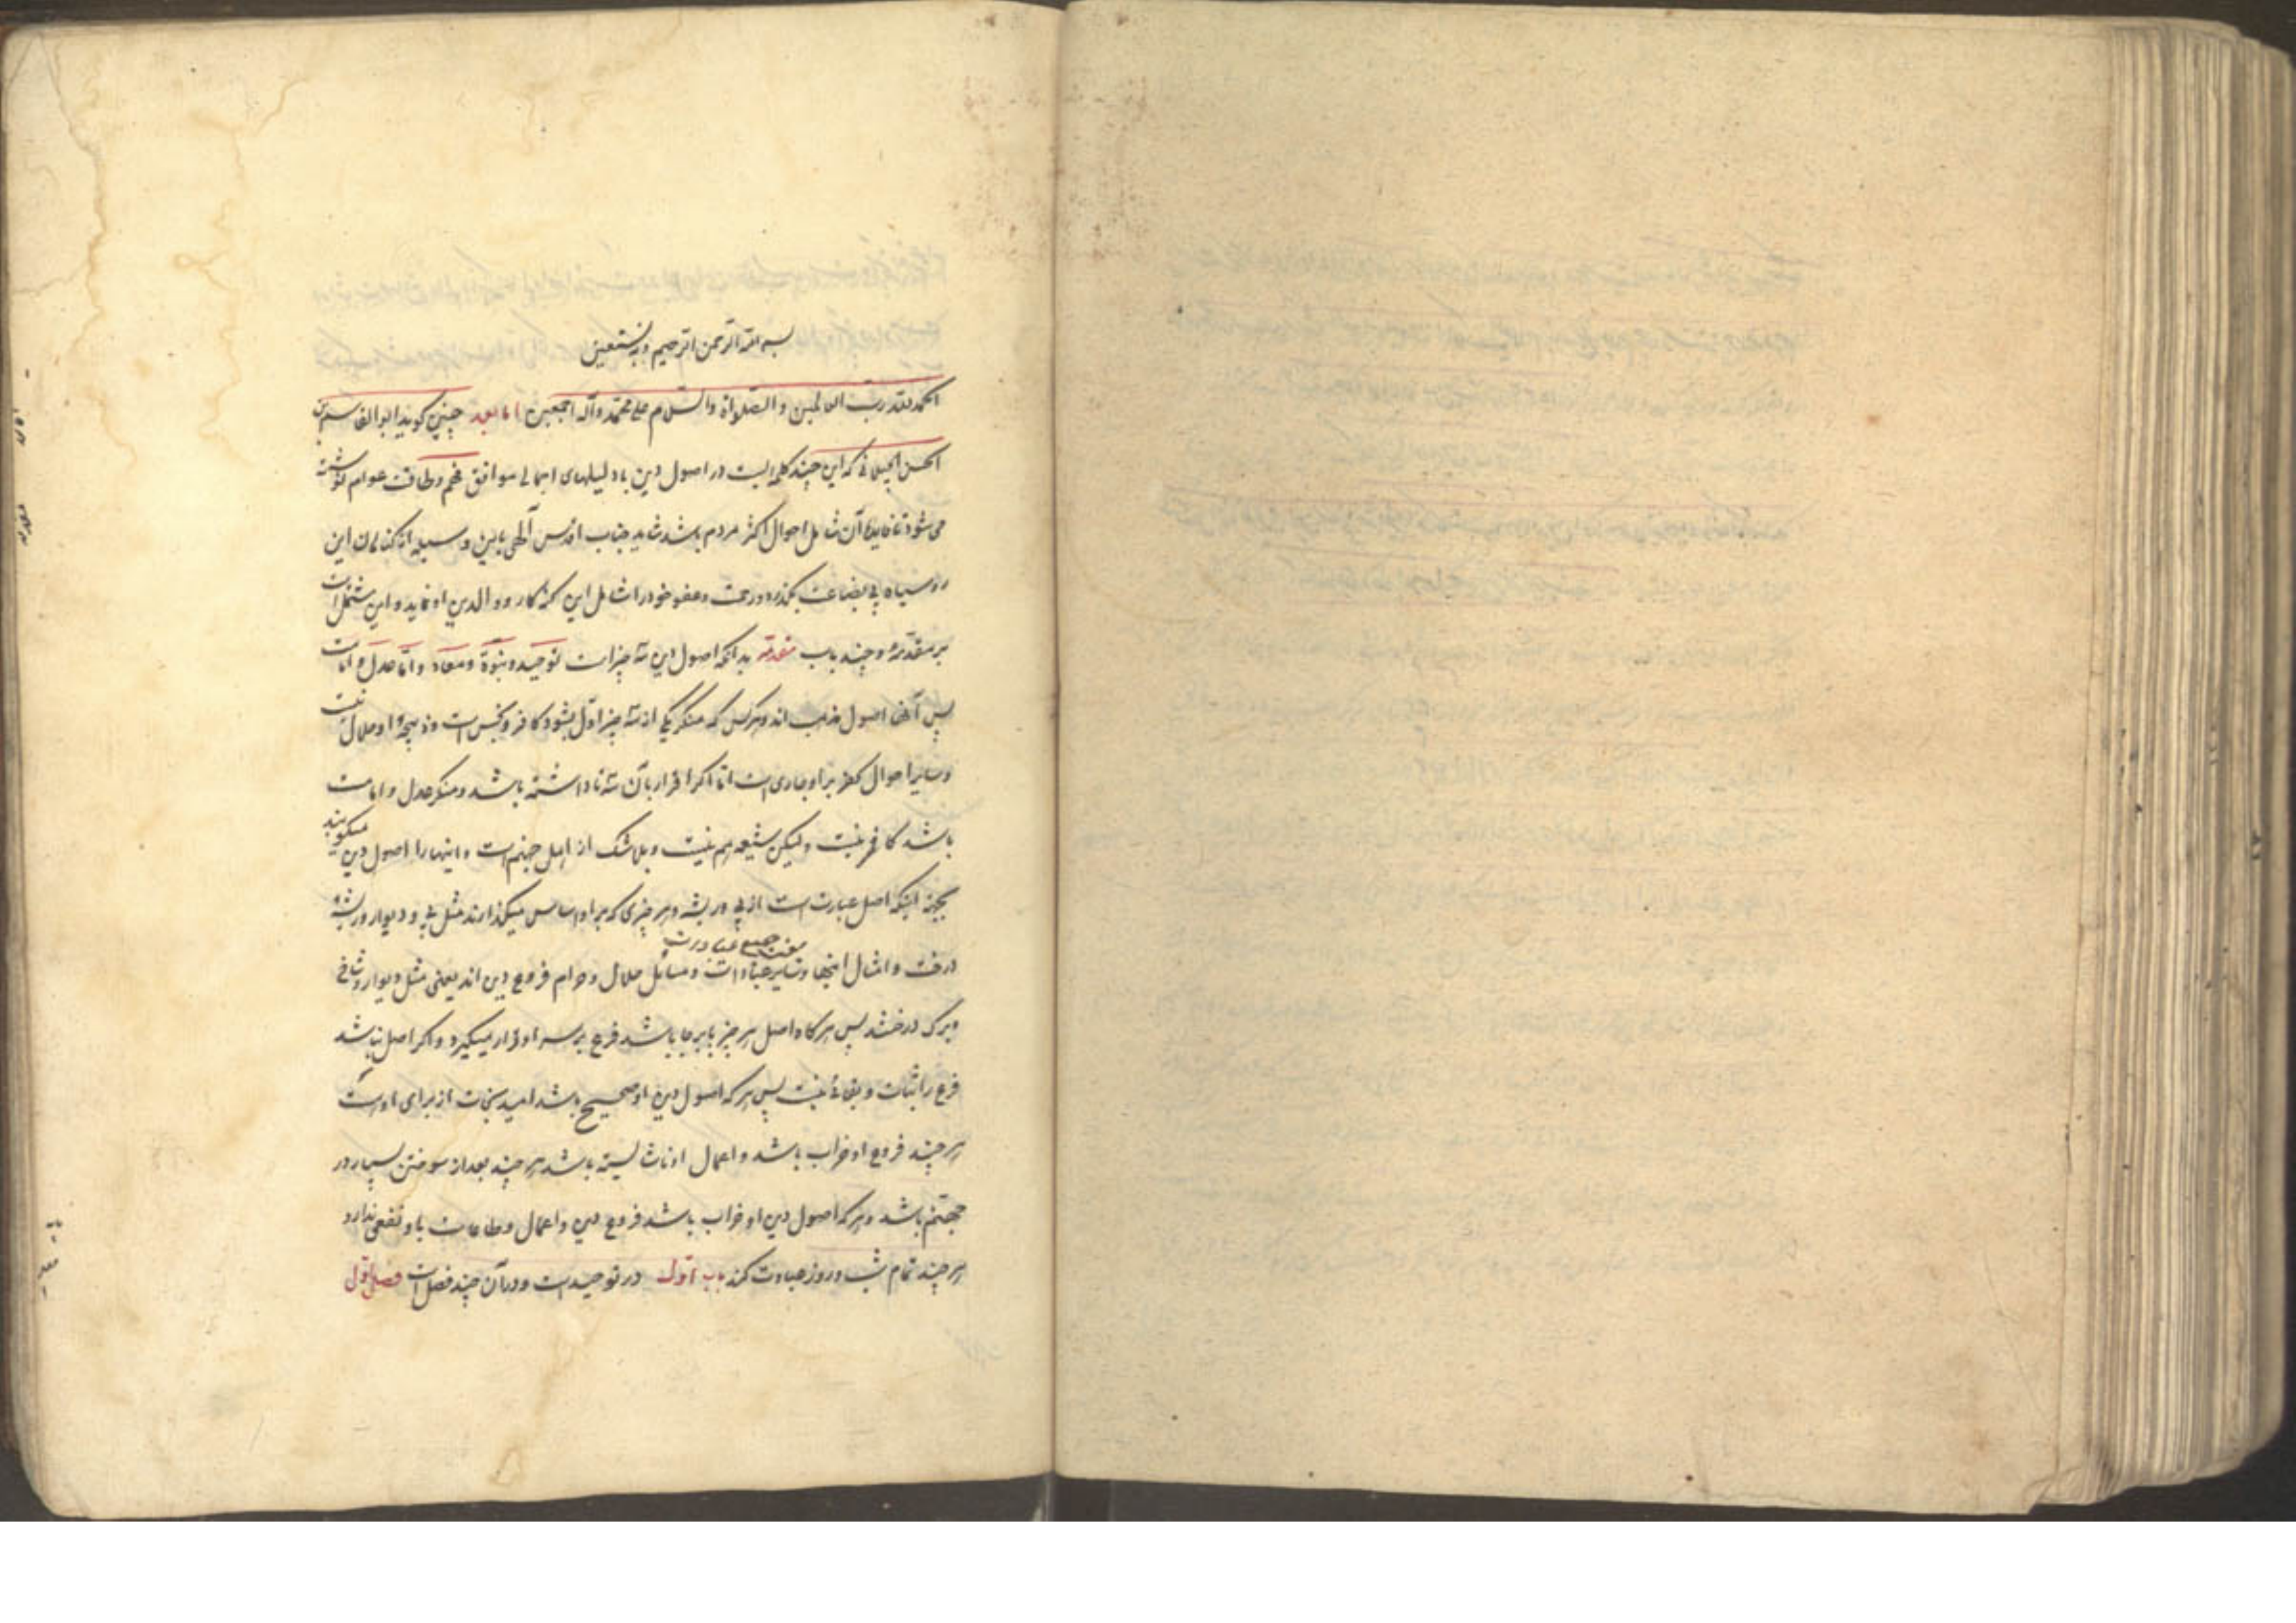 بسم الله الرحمن الرحیم وبه نستعین
الحمد لله رب العالمین و الصلواة والسلام علی محمد وآله اجمعین اما بعد چنین کوید ابو القاسم بن
الحسن الجیلانی که این چند کلمه ایست در اصول دین با دلیلهای اجمالی موافق فهم وطاقت عوام نوشته
می شود تا فایدهٔ آن شامل احوال اکثر مردم باشد شاید جناب اقدس آلهی باین وسیله از کناهان این
روسیاه بی بضاعت بکذرد ورحمت وعفو خود را شامل این کنه کار و والدین او نماید و این مشتمل است
بر مقدمهٔ و چند باب مقدمه بدانکه اصول دین سه چیز است توحید و نبوة و معاد و اما عدل و امامت
پس آنها اصول مذهب اند و هر کس که منکر یکی از سه چیز اول بشود کافر و نجس است و ذبیحهٔ او حلال نیست
و سایر احوال کفر بر او جاری است اما اکر اقرار بآن سه تا داشته باشد و منکر عدل و امامت
باشد کافر نیست و لیکن شیعه هم نیست و بلا شک از اهل جهنم است و اینها را اصول دین میکویند
بجهة اینکه اصل عبارت است از پی و ریشه و هر چیزی که بر او اساس میکذارند مثل پی و دیوار و ریشهٔ
درخت و امثال اینها و سایر عبادات و مسائل حلال و حرام فروع دین اند یعنی مثل دیوار و شاخ
و برک درختند پس هر کاه اصل هر چیز پابرجا باشد فرع بر سر او قرار میکیرد و اکر اصل نباشد
فرع را ثبات و بقائی نیست پس هر که اصول دین او صحیح باشد امید نجات از برای او است
هر چند فروع او خراب باشد و اعمال او ناشایسته باشد هر چند بعد از سوختن بسیار در
جهنم باشد و هر که اصول دین او خراب باشد فروع دین و اعمال و طاعات باو نفعی ندارد
هر چند تمام شب و روز عبادت کند باب اول در توحید است و در آن چند فصل است فصل اول